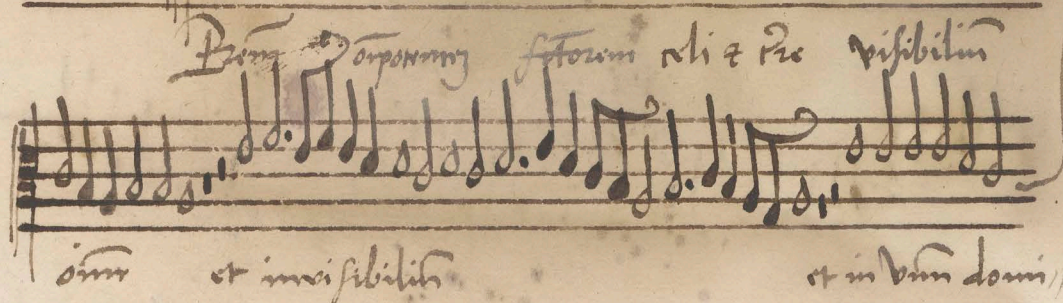 Prem oīpotentez fctorem celi & tr̄e visibiliū
oīm et invisibiliū et in vnū domi